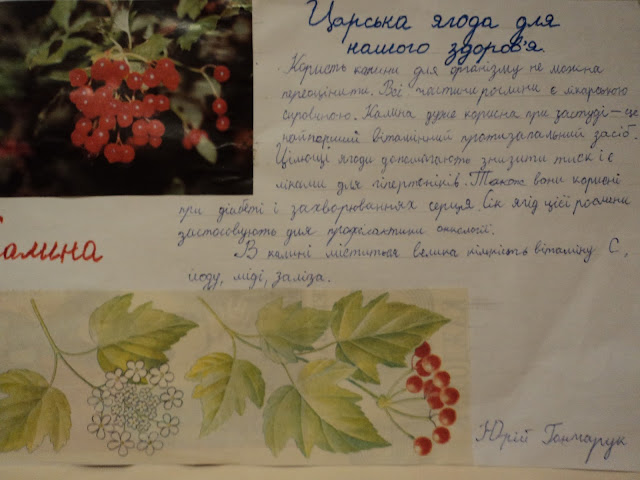 Царська ягода для
нашого здоров'я.
Користь калини для організму не можна
переоцінити. Всі частини рослини є лікарською
сировиною. Калина дуже корисна при застуді – це
найперший вітамінний протизапальний засіб.
Цілющі ягоди допомагають знизити тиск і є
ліками для гіпертоніків. Також вони корисні
при діабеті і захворюваннях серця. Сік ягід цієї рослини
застосовують для профілактики онкології.
В калині міститься велика кількість вітаміну С,
йоду, міді, заліза.
Калина
Юрій Гончарук